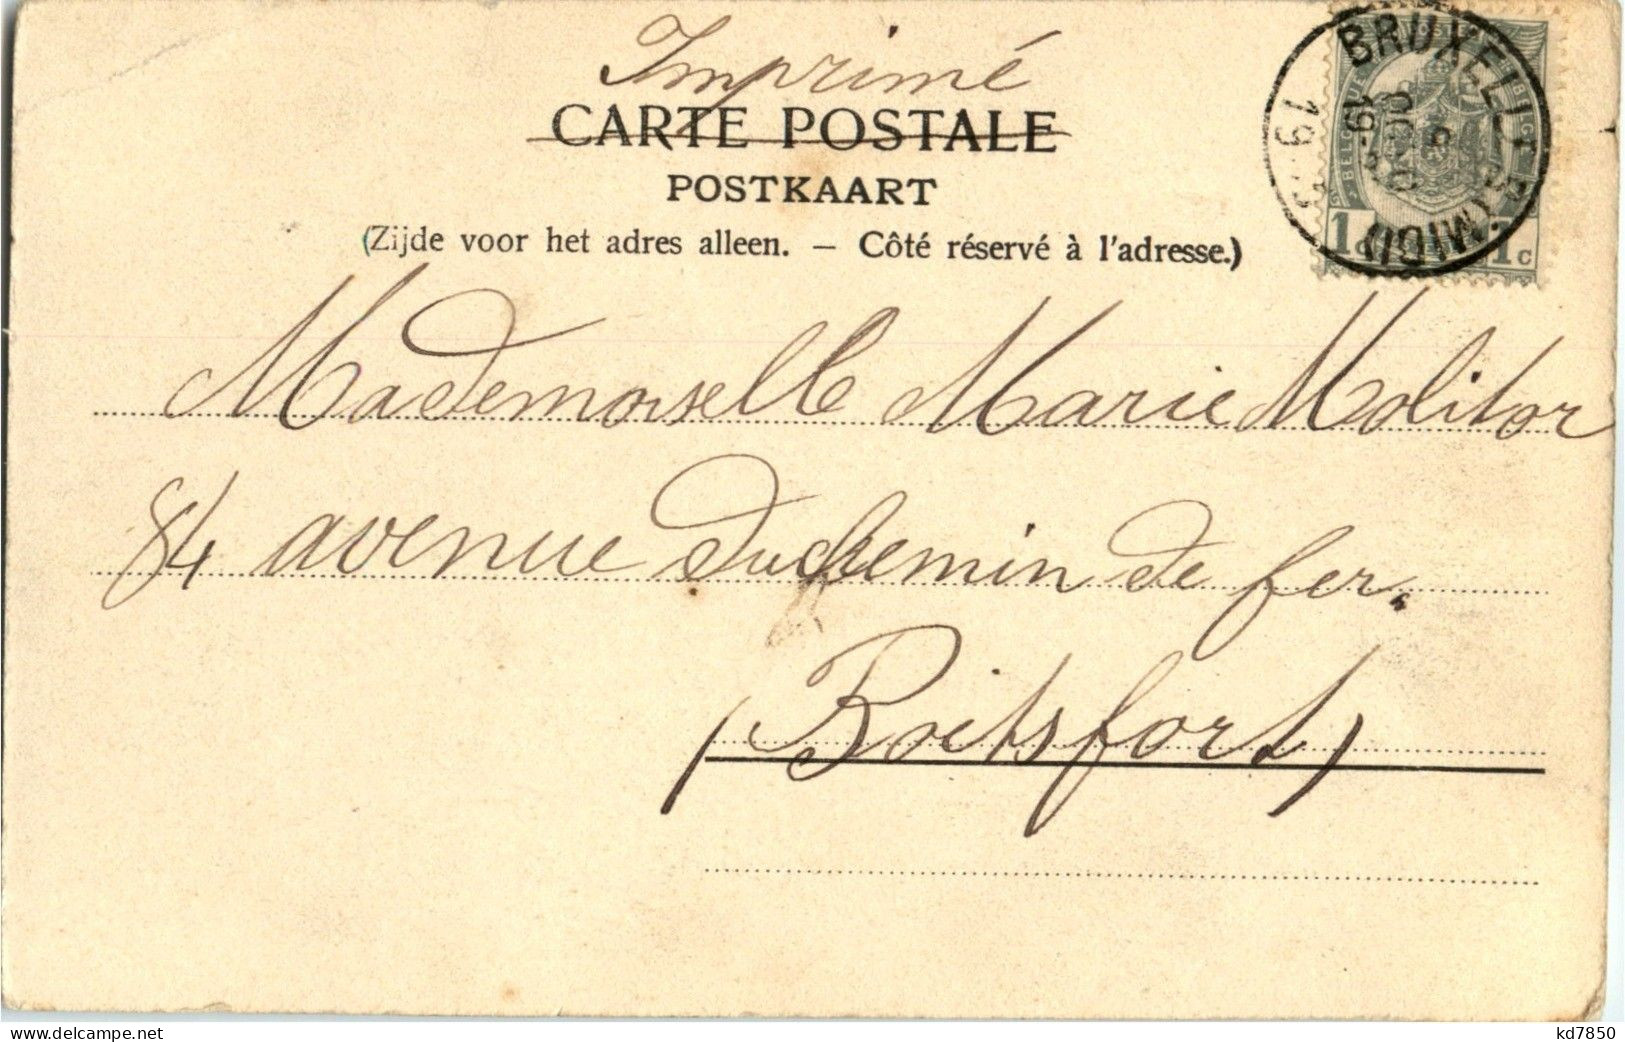 Imprimé
CARTE POSTALE
POSTKAART
(Zijde voor het adres alleen. – Côté réservé à l'adresse.)
BRUXELLES (MIDI)
19
1c 1c
Mademoiselle Marie Molitor
84 avenue du chemin de fer.
(Boitsfort)
www.delcampe.net
kd7850